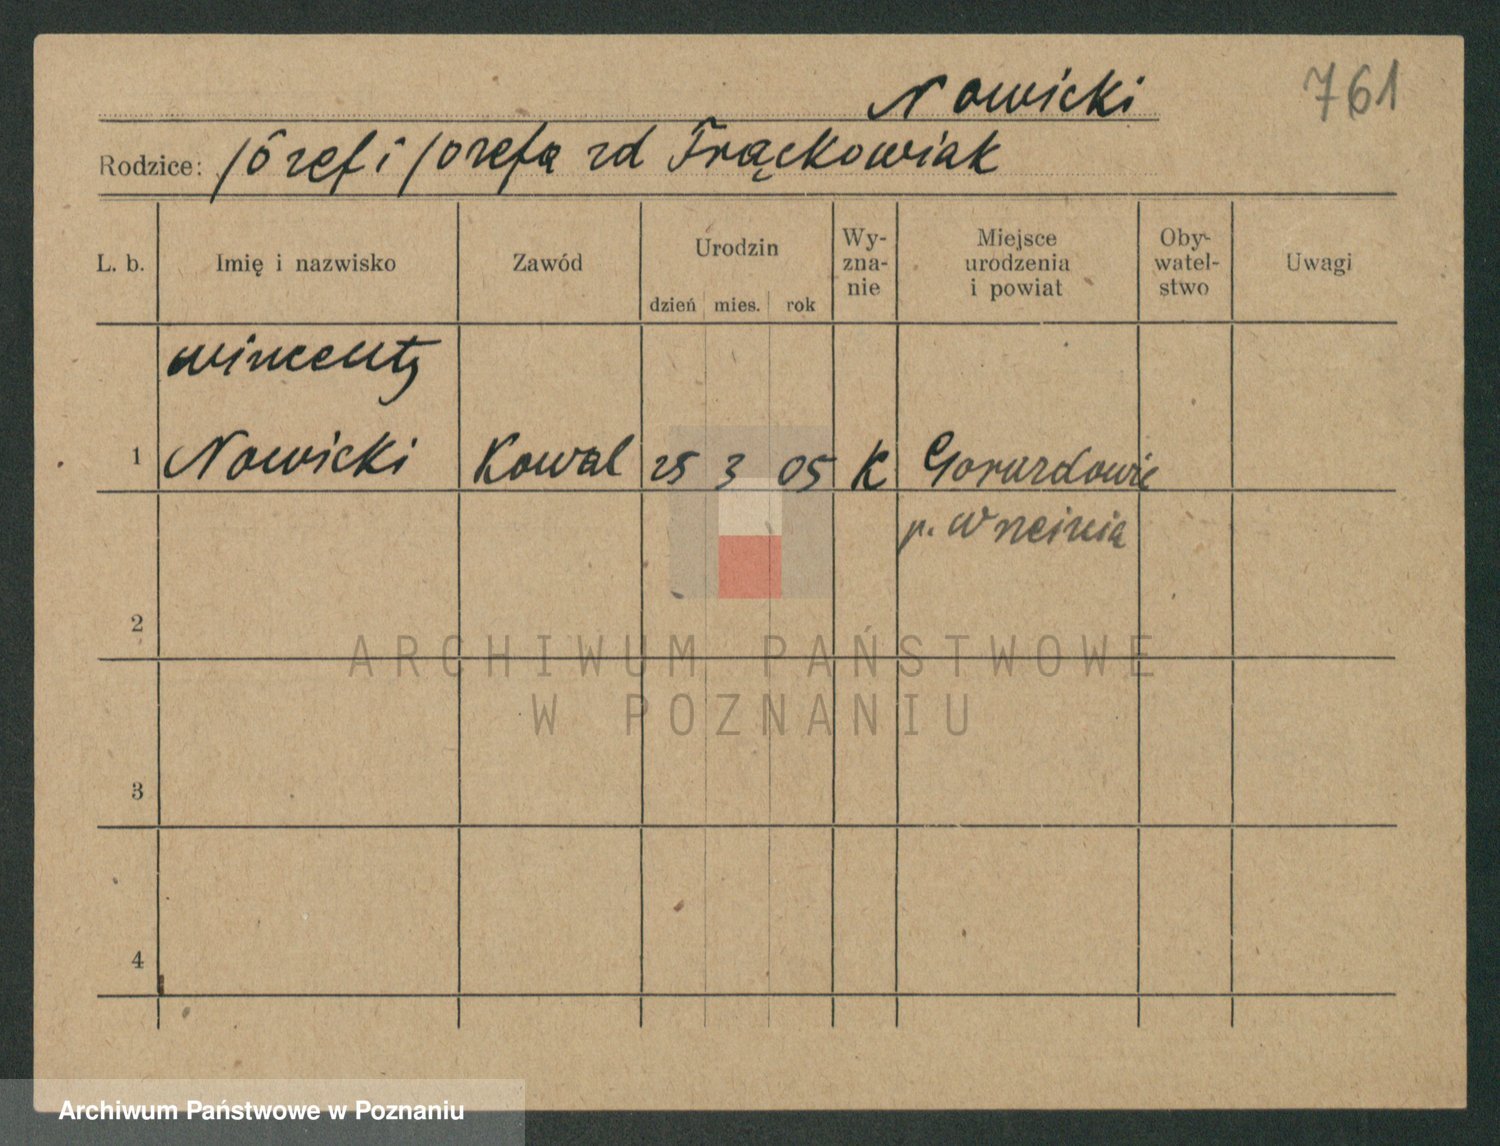 Nowicki
761
Rodzice: Józef i Józefa zd Frąckowiak
L. b. Imię i nazwisko Zawód Urodzin dzień mies. rok Wy-zna-nie Miejsce urodzenia i powiat Oby-watel-stwo Uwagi
Wincenty
1 Nowicki Kowal 25 3 05 K
p. Września
2
ARCHIWUM PAŃSTWOWE
W POZNANIU
3
4
Archiwum Państwowe w Poznaniu